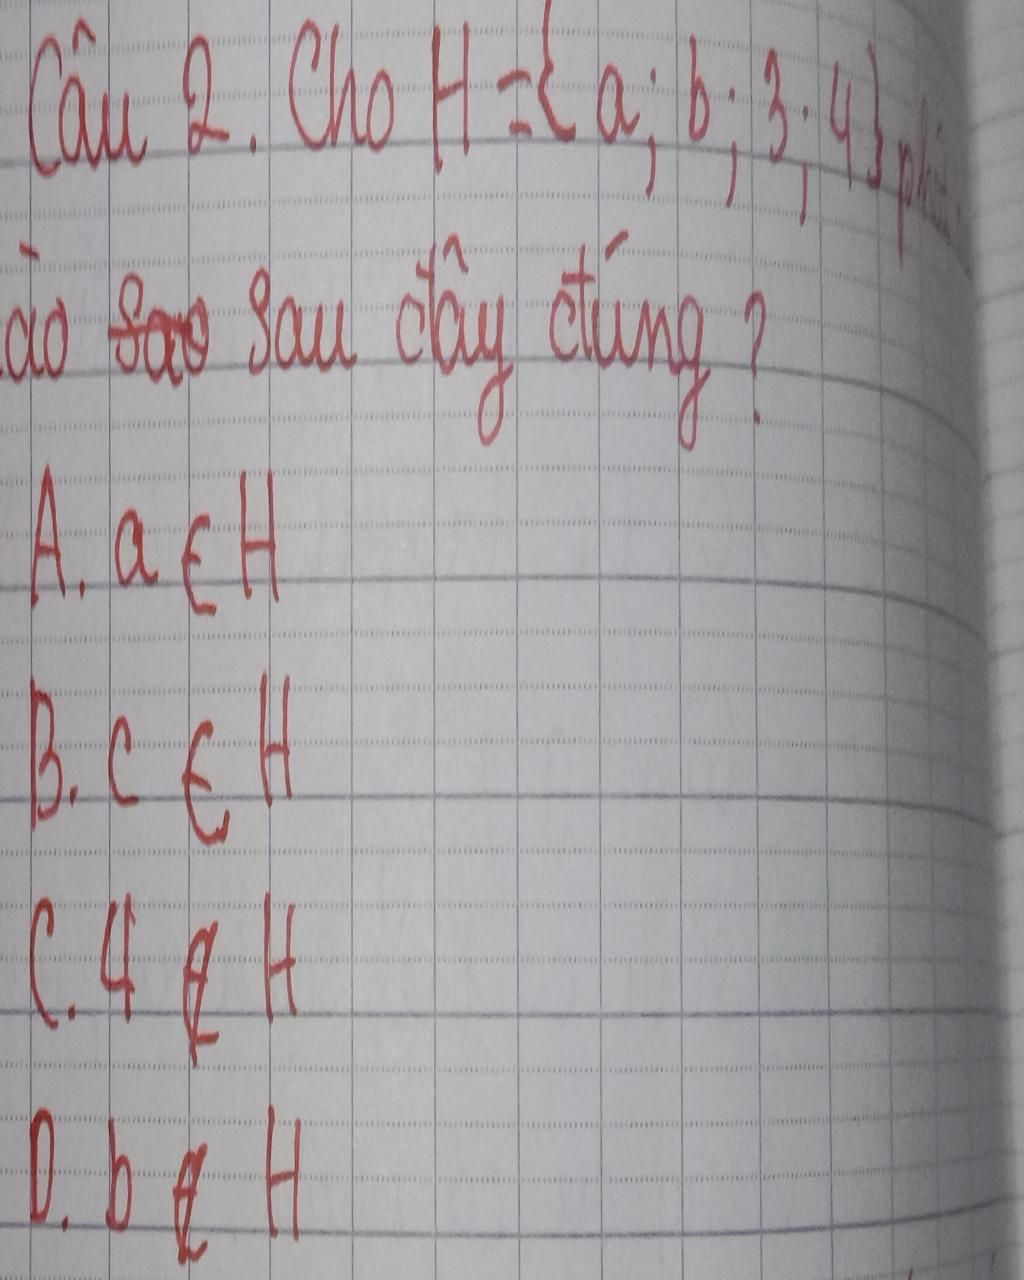 Câu 2. Cho H = { a; b; 3; 4}
sau đây đúng?
A. a ∈ H
B. c ∈ H
C. 4 ∉ H
D. b ∉ H